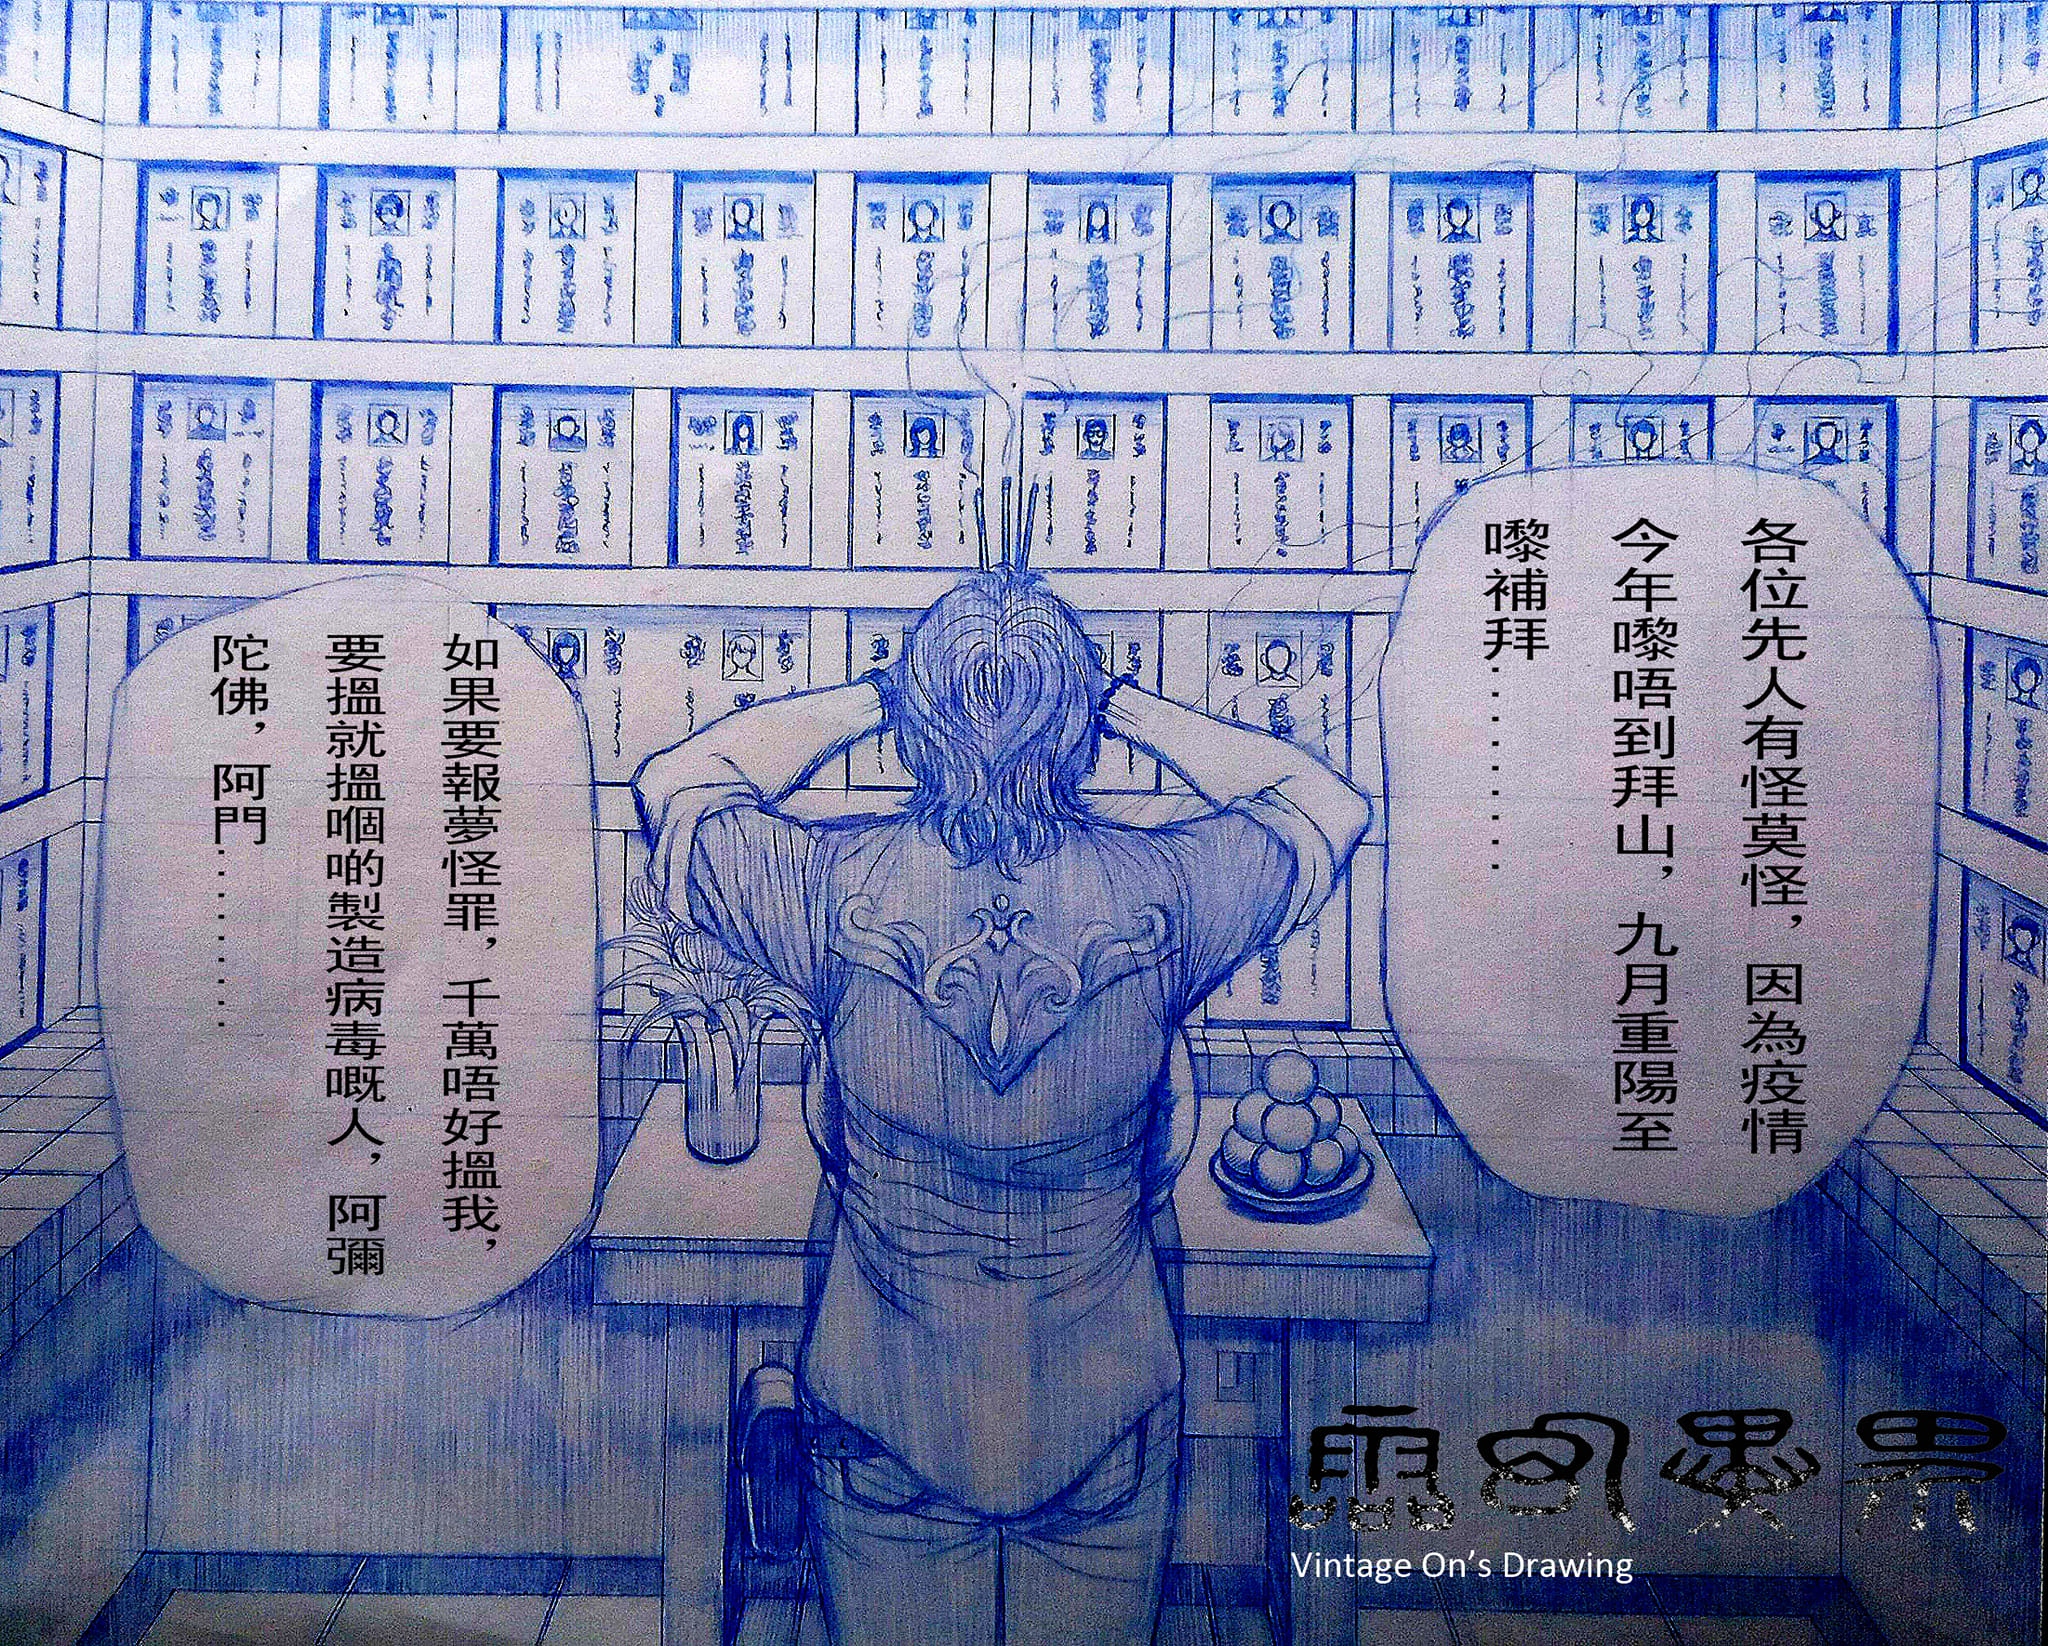 各位先人有怪莫怪，因為疫情
今年嚟唔到拜山，九月重陽至
嚟補拜…………
如果要報夢怪罪，千萬唔好搵我，
要搵就搵嗰啲製造病毒嘅人，阿彌
陀佛，阿門…………
Vintage On's Drawing